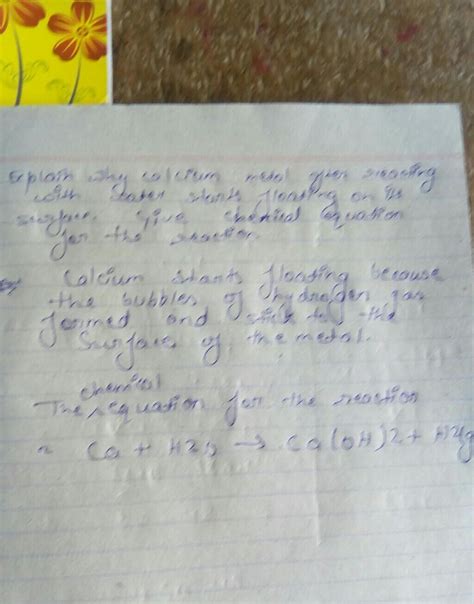 Explain why calcium metal after reacting
with water starts floating on its
surface. Give chemical equation
for the reaction.
Calcium starts floating because
the bubbles of hydrogen gas
formed and stick to the
surface of the metal.
chemical
The equation for the reaction
Ca + H2O → Ca(OH)2 +